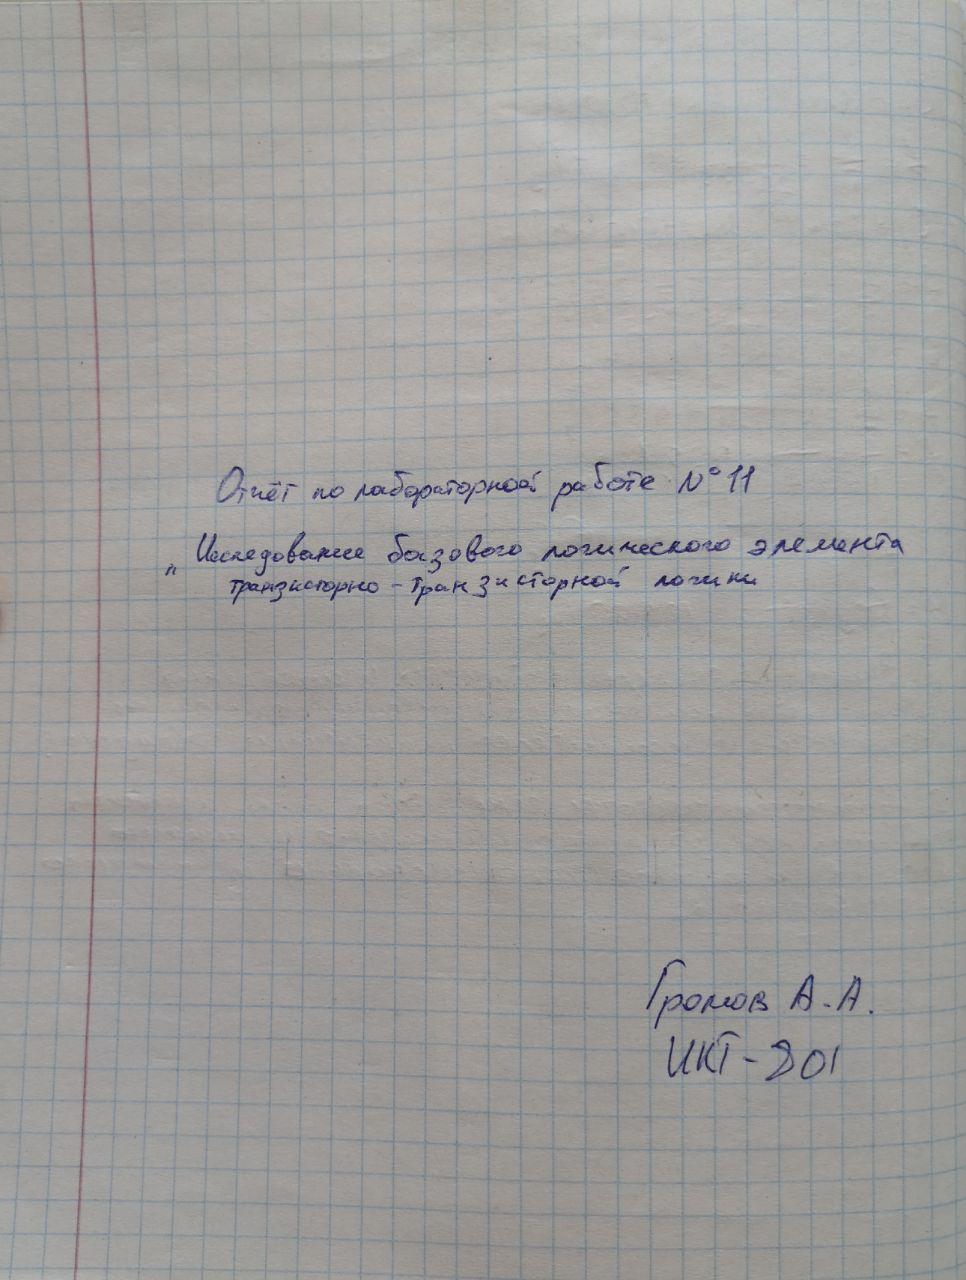 Отчёт по лабораторной работе N° 11
„Исследование базового логического элемента
транзисторно-транзисторной логики
Громов А.А.
ИКТ-801